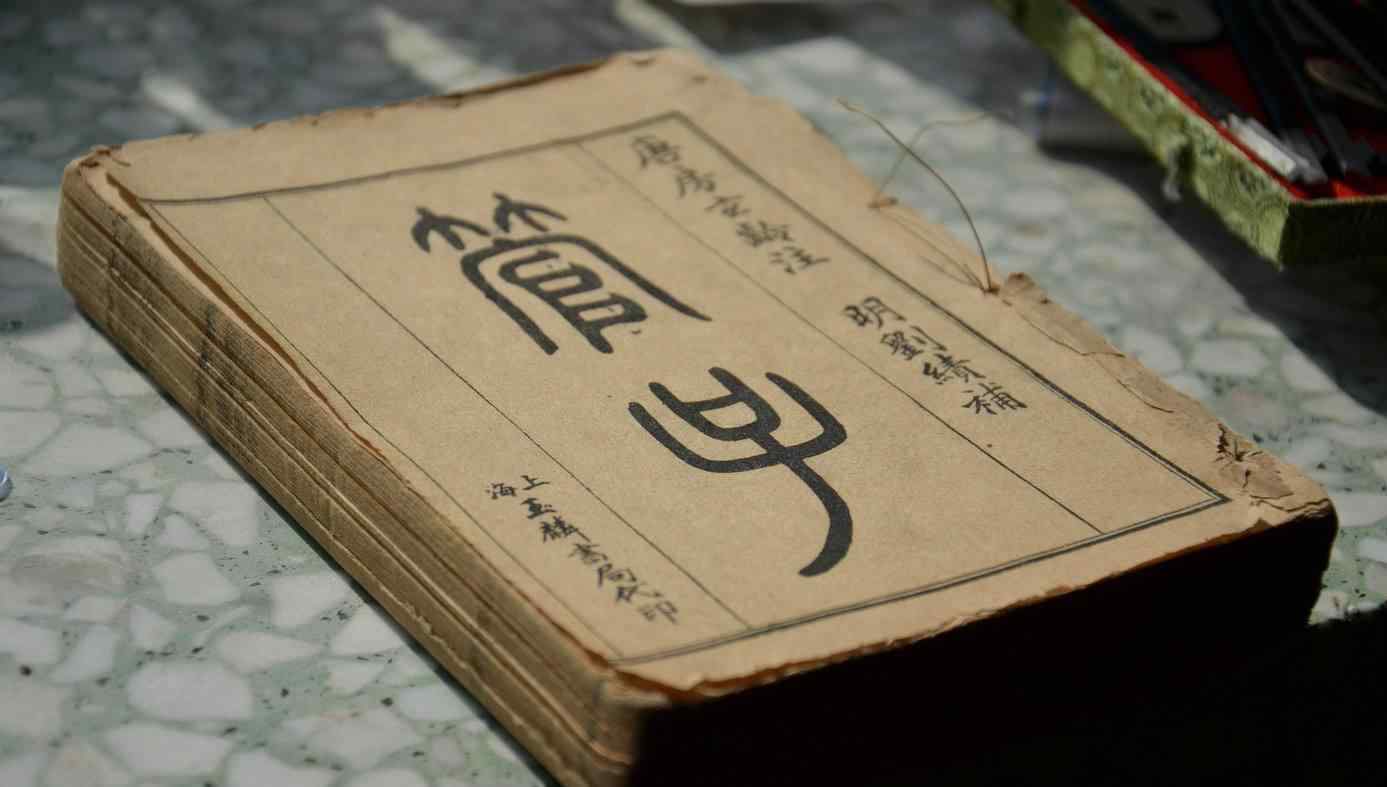 唐房玄齡注 明劉績補
管子
上海玉麟書局代印